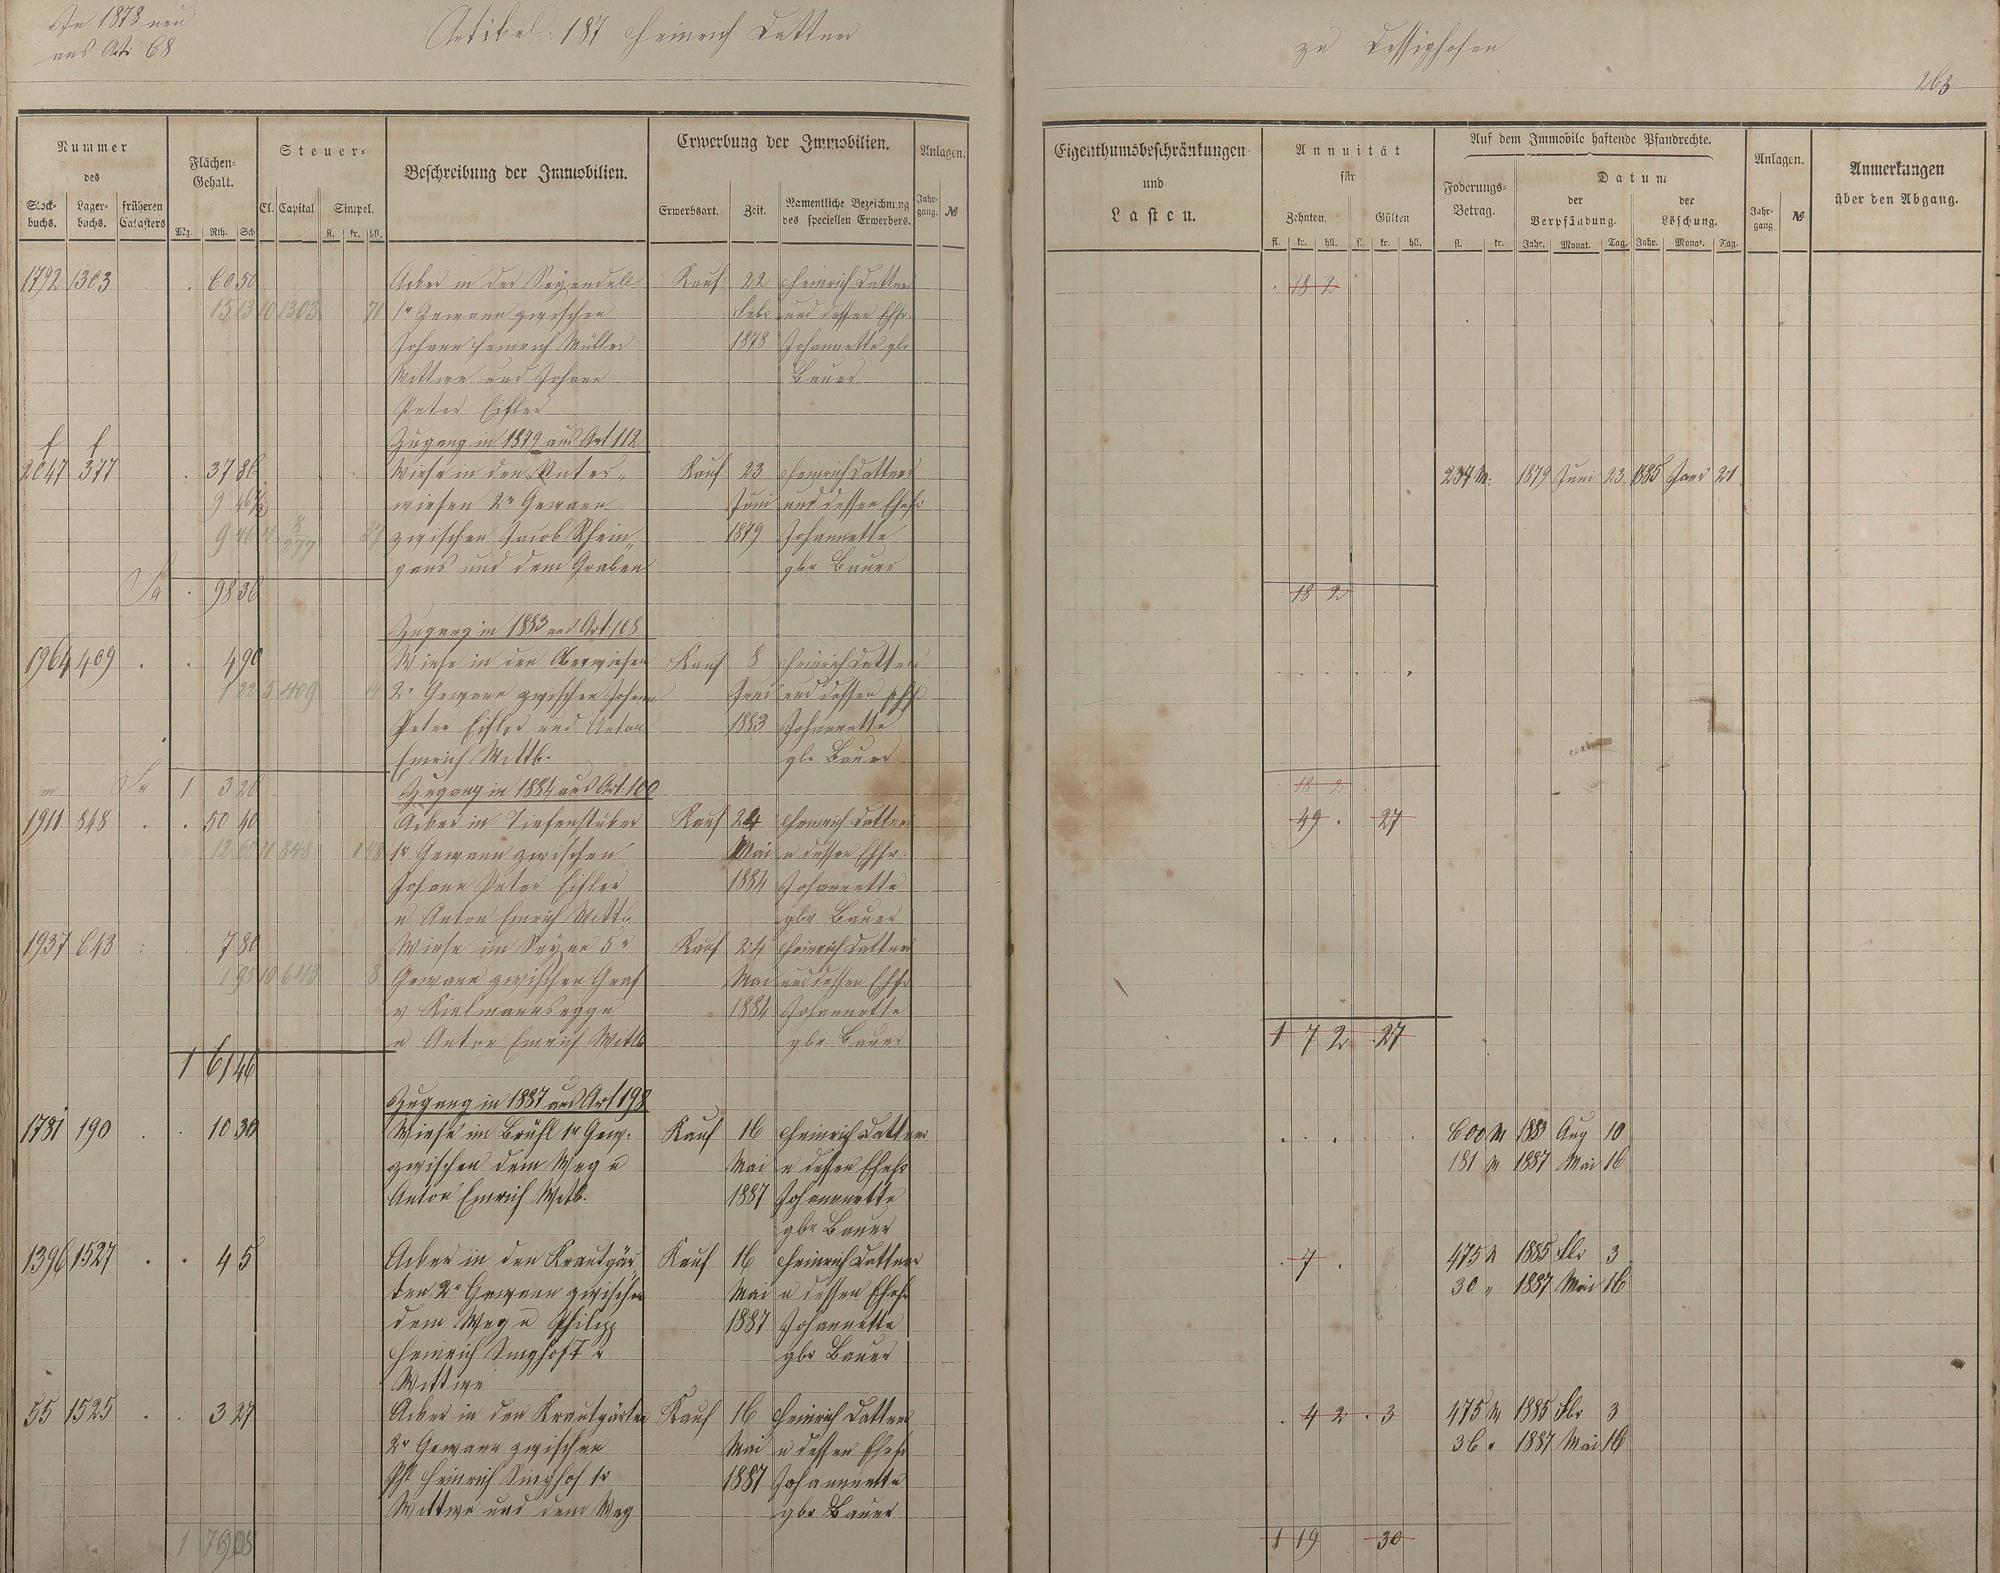 In 1878 neu
aus Art 68
Artikel: 187 Heinrich Dattner
zu Dessighofen
263
Nummer
des
Stock-
buchs.
Lager-
buchs.
früheren
Catasters
Flächen-
Gehalt.
Mg. Rth. Sch
Steuer-
Cl. Capital Simpel.
fl. kr. hll.
Beschreibung der Immobilien.
Erwerbung der Immobilien.
Erwerbsart. Zeit. Namentliche Bezeichnung
des speciellen Erwerbers.
Anlagen.
Jahr-
gang. №
Eigenthumsbeschränkungen
und
Lasten.
Annuität
für
Zehnten. Gülten
fl. kr. hll. fl. kr. hll.
Auf dem Immobile haftende Pfandrechte.
Foderungs-
Betrag.
fl. kr.
Datum
der
Verpfändung.
der
Löschung.
Jahr. Monat. Tag. Jahr. Monat. Tag.
Anlagen.
Jahr-
gang №
Anmerkungen
über den Abgang.
1792 1303 60 50 Acker in der Kauf 22 Heinrich Dattner 18 2
15 13 10 1303 71 1r Gewann zwischen Febr und dessen Ehfr.
Johann Heinrich Müller 1878 Johannette gbr
Wittwe und Johann Bauer
Peter Eifler
Zugang in 1879 aus Art 112
2047 377 37 80 Wiese in den Unter- Kauf 23 Heinrich Dattner 237 M. 1879 Juni 23 1885 Janr 21
wiesen 2r Gewann Juni und dessen Ehefr
9 46 4 277 37 zwischen Jacob Rhein- 1879 Johannette
gans und dem Graben gbr Bauer
Sa 98 30 18 2
Zugang in 1883 aus Art. 108
1964 409 4 90 Wiese in den Oberwiesen Kauf 8 Heinrich Dattner
1 22 5 409 4 2r Gewann zwischen Johann Juni und dessen Ehfr
Peter Eifler und Anton 1883 Johannette
Emrich Wittb. gbr Bauer
Sa 1 3 20 18 2
Zugang in 1884 aus Art. 100
1911 848 50 40 Acker in Tiefenstüber Kauf 24 Heinrich Dattner 49 27
12 60 11 848 1 48 1r Gewann zwischen Mai u dessen Ehfr.
Johann Peter Eifler 1884 Johannette
u Anton Emrich Wittb gbr Bauer
1937 643 7 80 Wiese im 5r Kauf 24 Heinrich Dattner
1 95 10 643 8 Gewann zwischen Graf Mai und dessen Ehfr
v Kielmannsegge 1884 Johannette
u Anton Emrich Wittb gbr Bauer
1 7 2 27
1 61 46
Zugang in 1887 aus Art 198
1781 190 10 30 Wiese im Brühl 1r Gew. Kauf 16 Heinrich Dattner 600 M 1883 Aug 10
zwischen dem Weg u Mai u dessen Ehefr 181 M 1887 Mai 16
Anton Emrich Wittb. 1887 Johannette
gbr Bauer
1396 1527 4 5 Acker in den Krautgär- Kauf 16 Heinrich Dattner 7 475 M 1885 Fbr 3
ten 2r Gewann zwischen Mai u dessen Ehefr 30 " 1887 Mai 16
dem Weg u Philipp 1887 Johannette
Heinrich Singhof 1r gbr Bauer
Wittwe
55 1525 3 27 Acker in den Krautgärten Kauf 16 Heinrich Dattner 4 2 3 475 M 1885 Fbr 3
2r Gewann zwischen Mai u dessen Ehefr 36 " 1887 Mai 16
Phl Heinrich Singhof 1r 1887 Johannette
Wittwe und dem Weg gbr Bauer
1 79 08 1 19 30